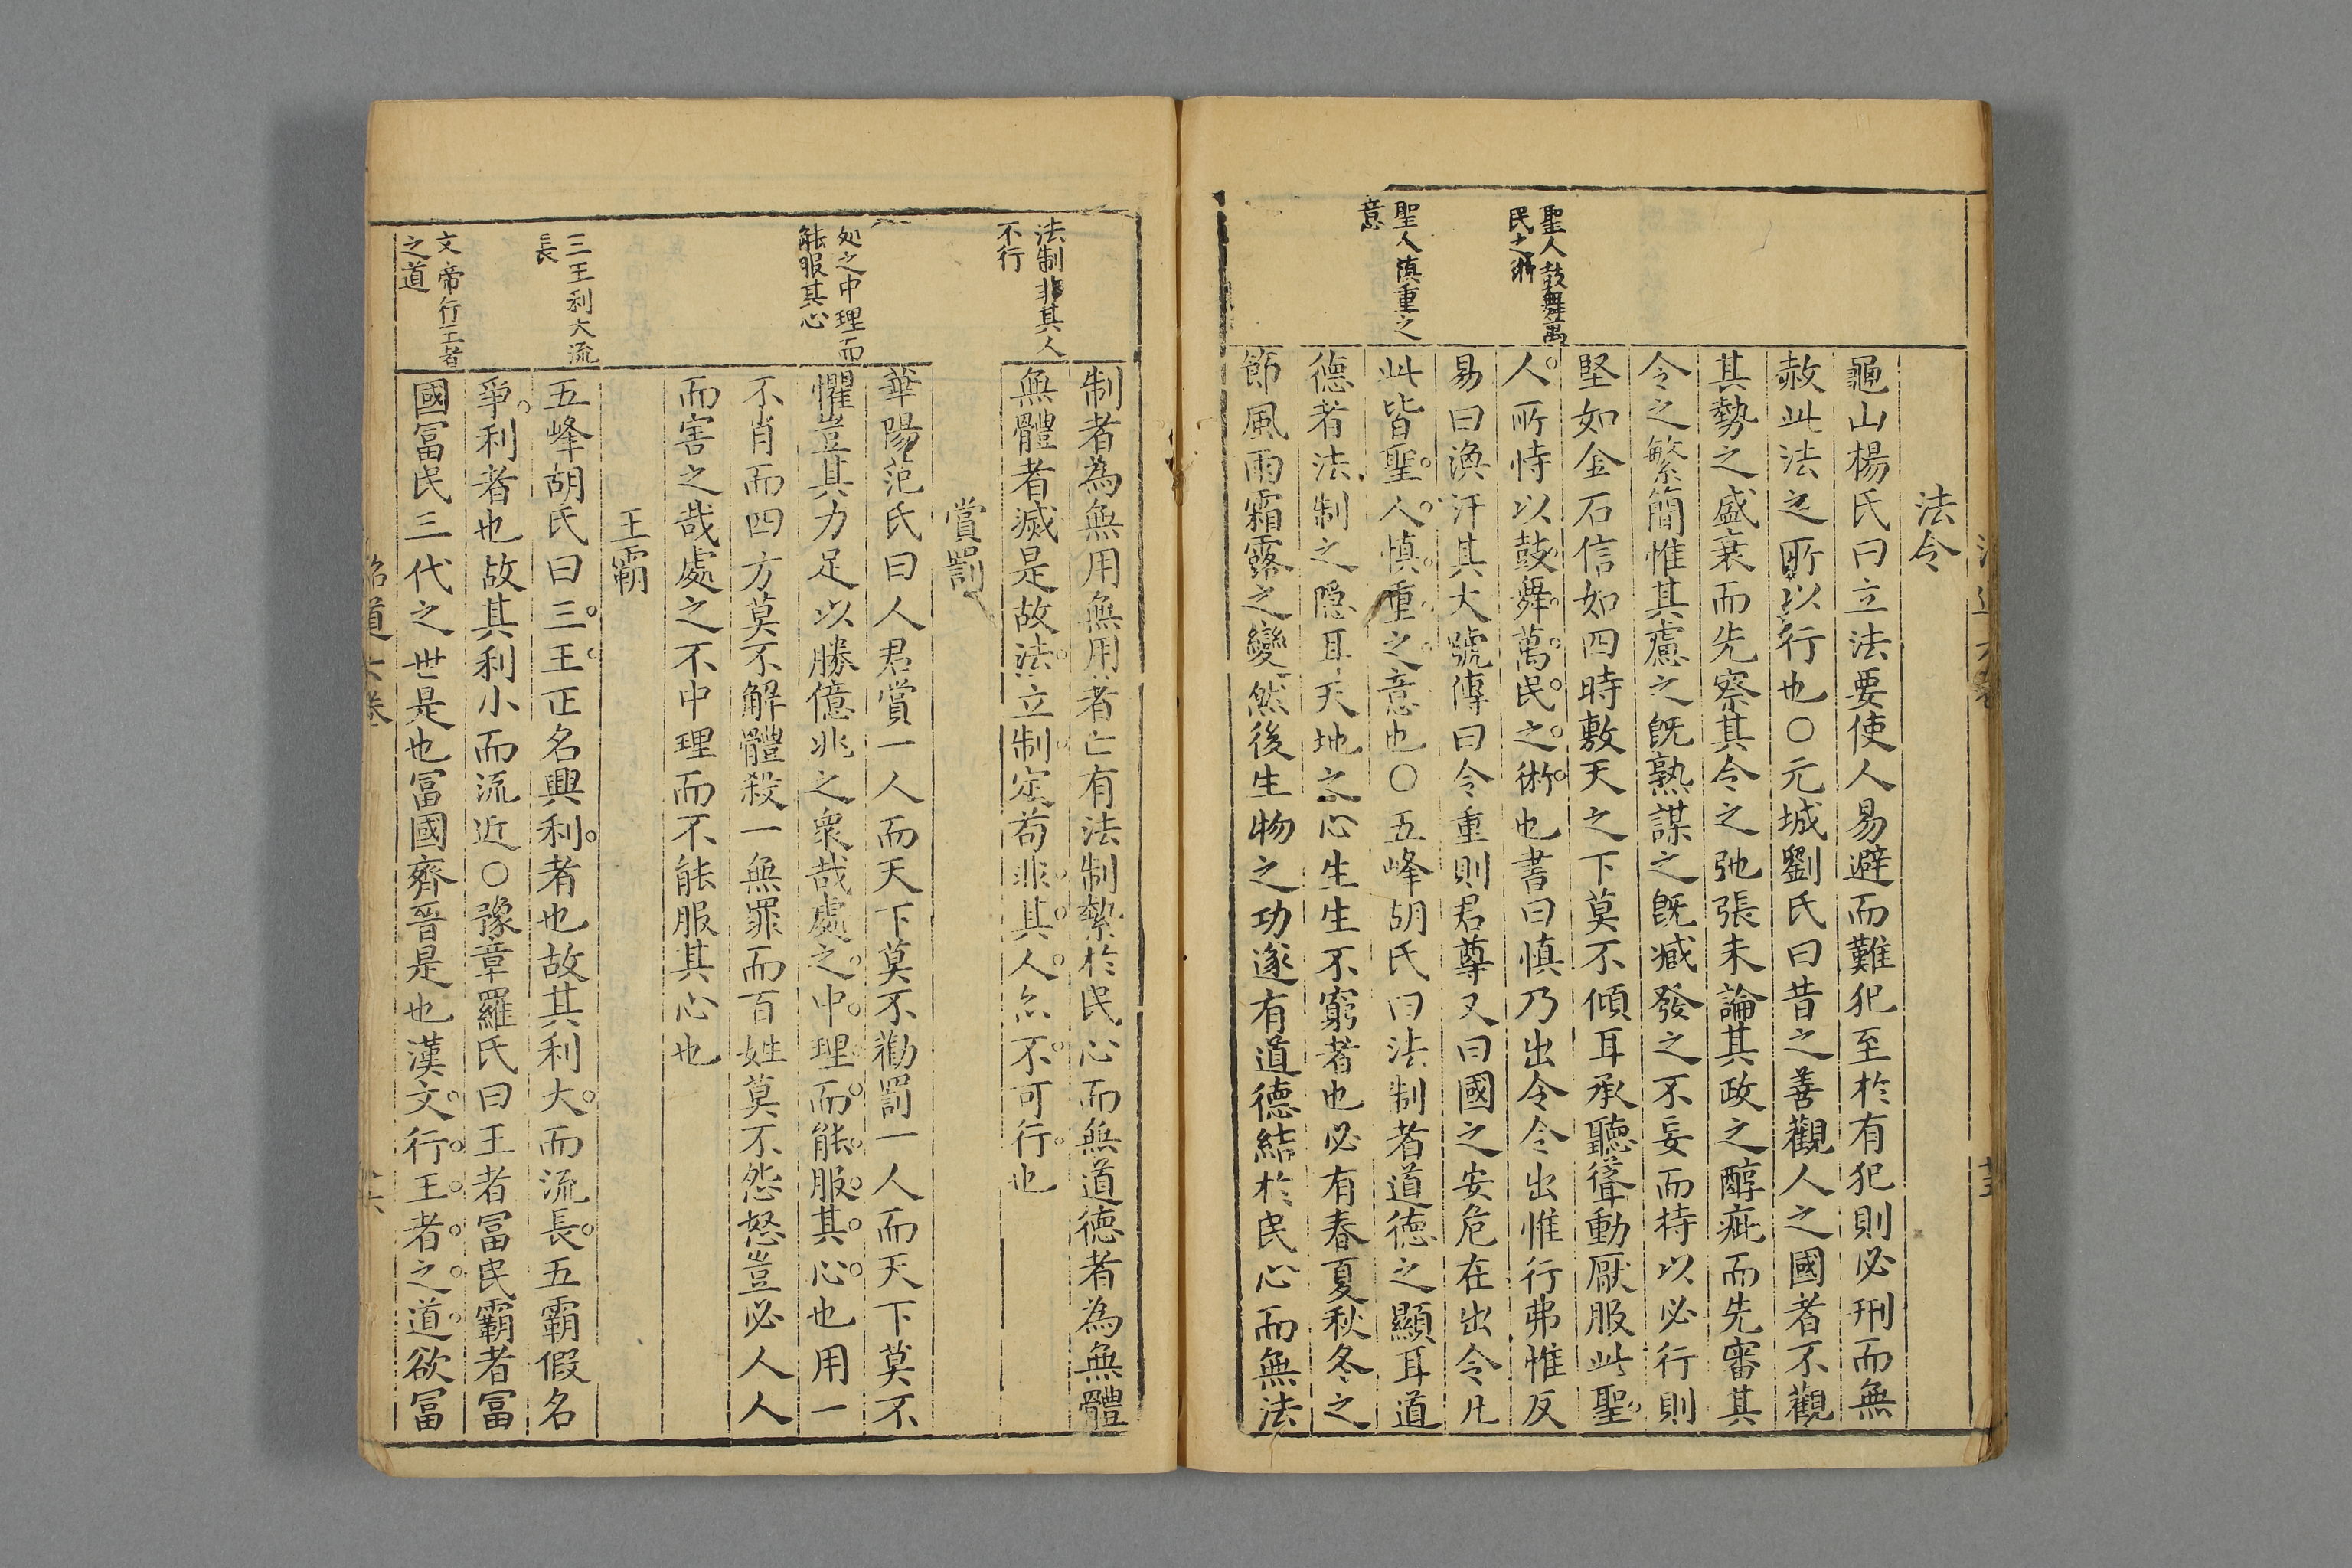 法令
龜山楊氏曰立法要使人易避而難犯至於有犯則必刑而無
赦此法之所以行也○元城劉氏曰昔之善觀人之國者不觀
其勢之盛衰而先察其令之弛張未論其政之醇疵而先審其
令之繁簡惟其慮之既熟謀之既臧發之不妄而持以必行則
堅如金石信如四時敷天之下莫不傾耳承聽聳動厭服此聖
人所恃以鼓舞萬民之術也書曰慎乃出令令出惟行弗惟反
易曰渙汗其大號傳曰令重則君尊又曰國之安危在出令凡
此皆聖人慎重之意也○五峰胡氏曰法制者道德之顯耳道
德者法制之隱耳天地之心生生不窮者也必有春夏秋冬之
節風雨霜露之變然後生物之功遂有道德結於民心而無法
聖人鼓舞萬
民之術
聖人慎重之
意
制者為無用無用者亡有法制繫於民心而無道德者為無體
無體者滅是故法立制定苟非其人亦不可行也
賞罰
華陽范氏曰人君賞一人而天下莫不勸罰一人而天下莫不
懼豈其力足以勝億兆之衆哉處之中理而能服其心也用一
不肖而四方莫不解體殺一無罪而百姓莫不怨怒豈必人人
而害之哉處之不中理而不能服其心也
王霸
五峰胡氏曰三王正名興利者也故其利大而流長五霸假名
爭利者也故其利小而流近○豫章羅氏曰王者冨民霸者冨
國冨民三代之世是也冨國齊晉是也漢文行王者之道欲冨
法制非其人
不行
処之中理而
能服其心
三王利大流
長
文帝行王者
之道